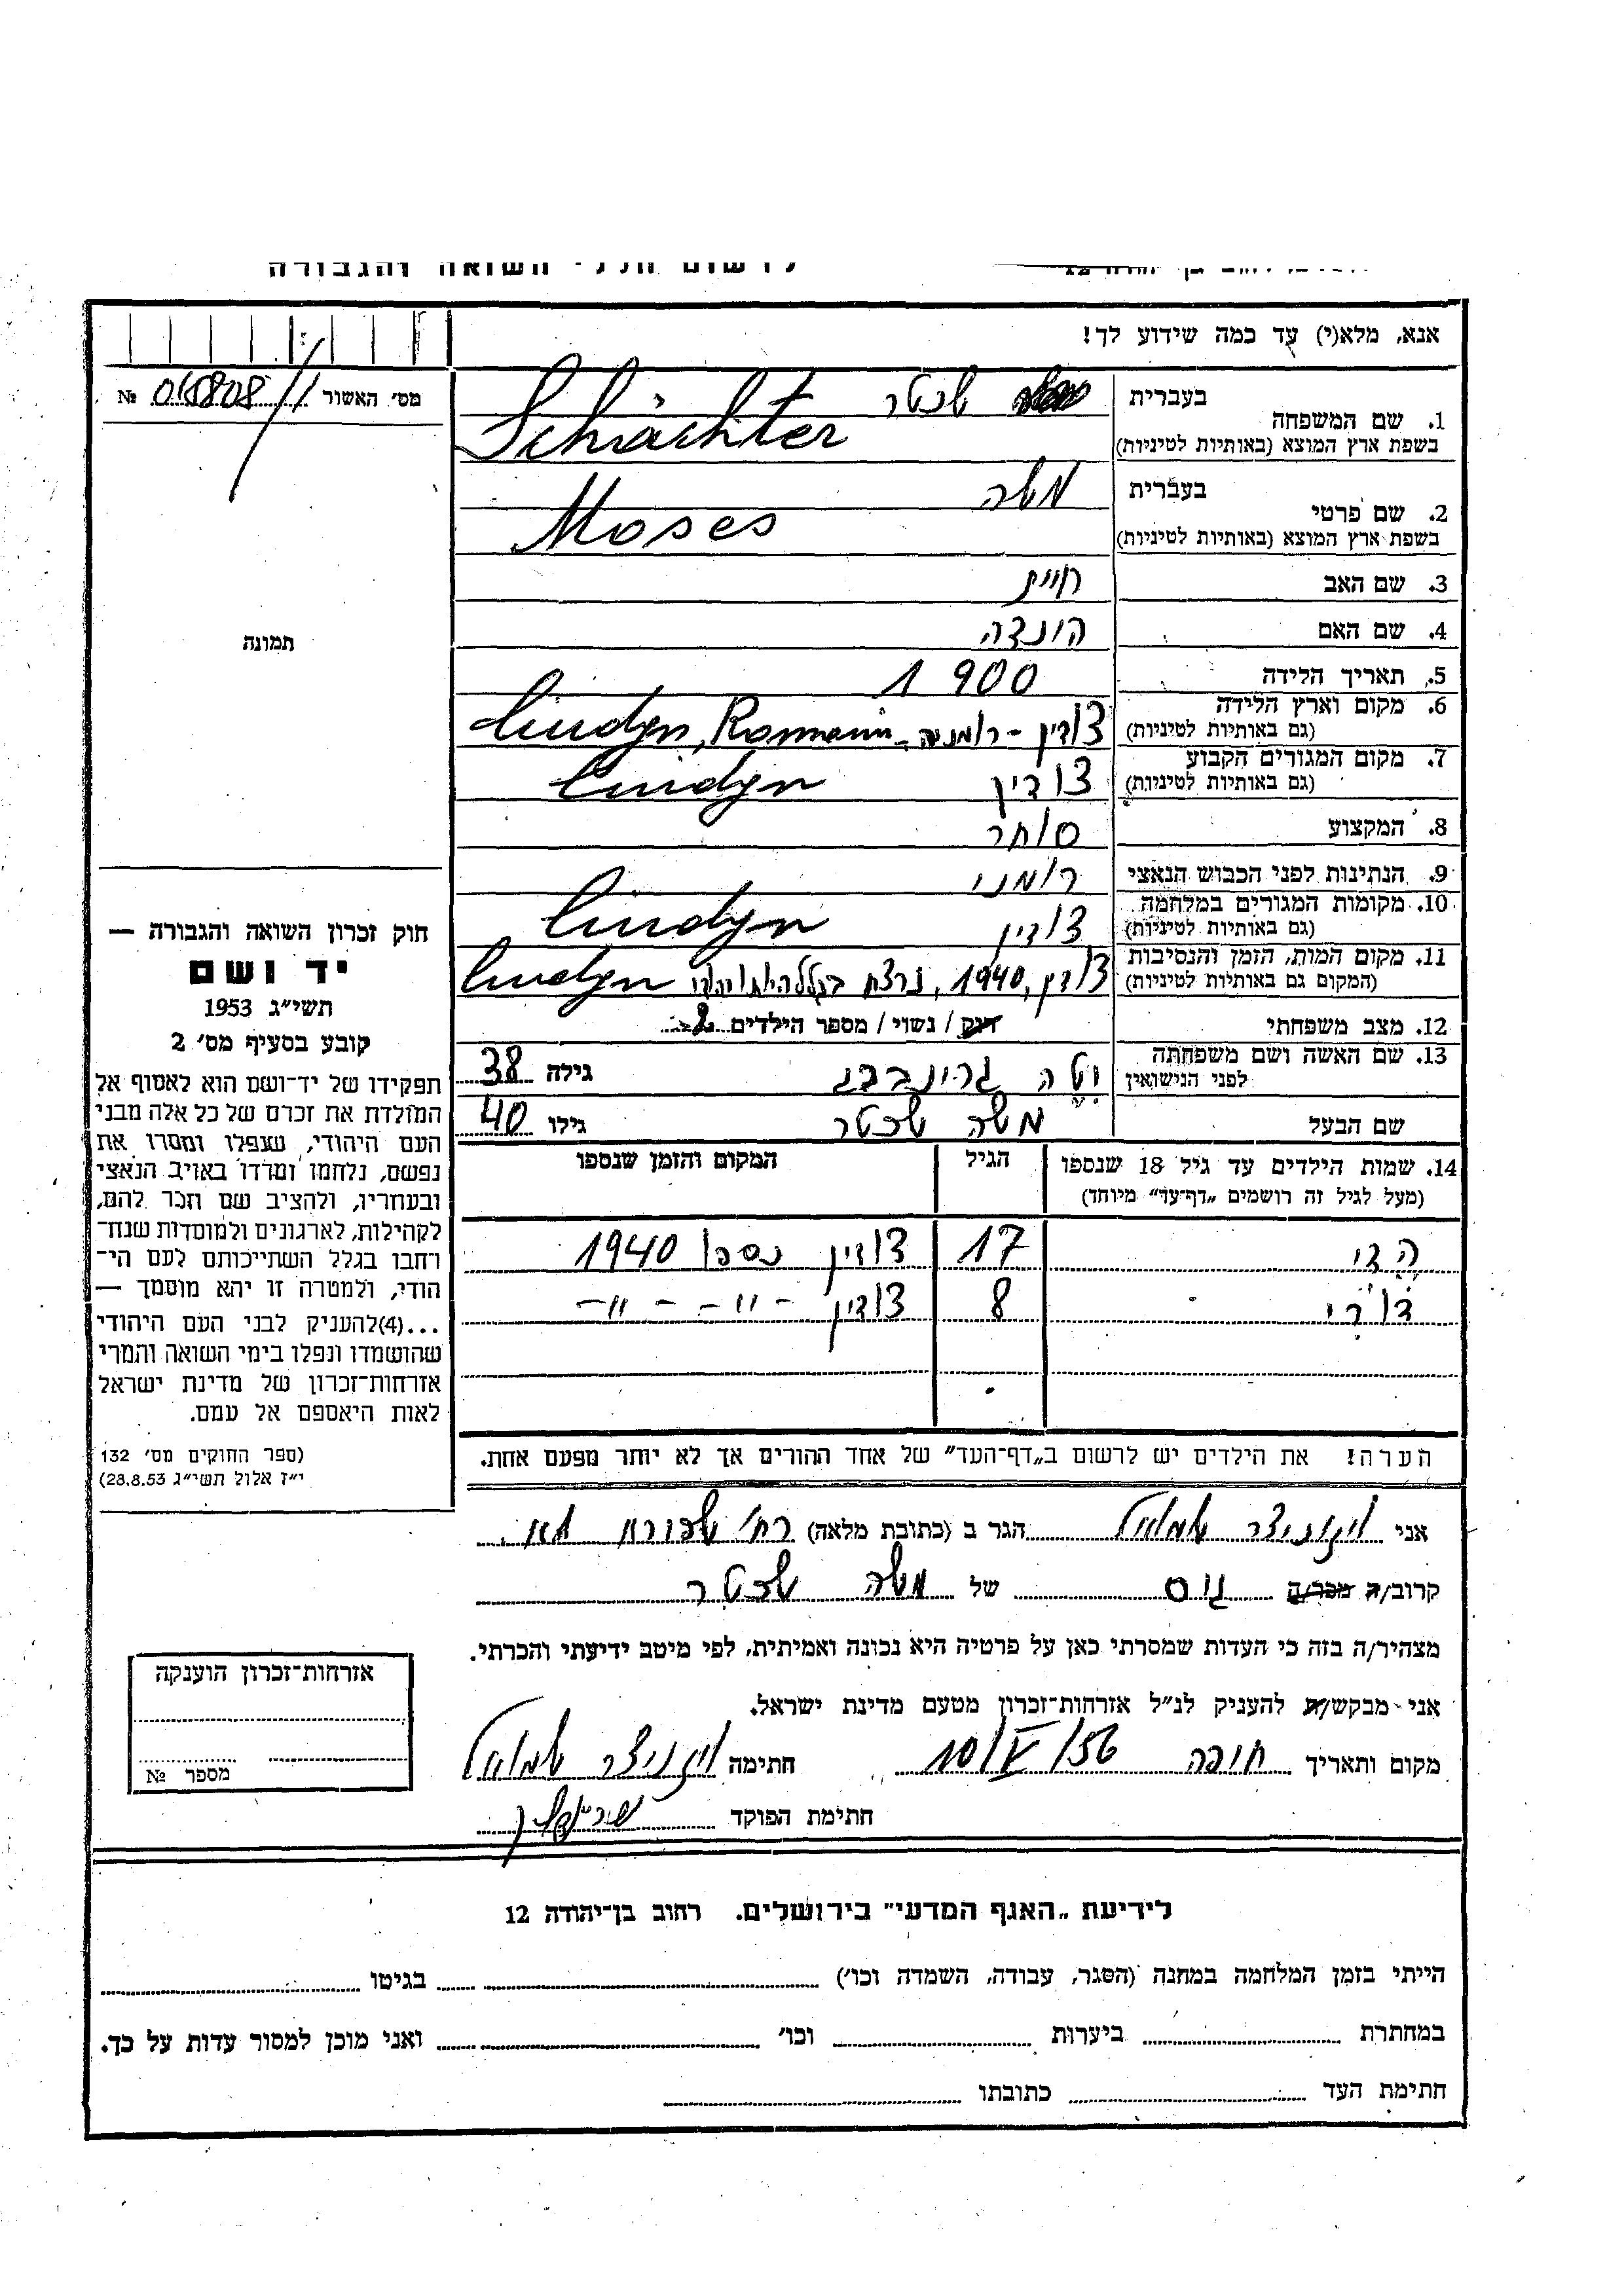 לרשום חללי השואה והגבורה
אנא, מלא(י) עד כמה שידוע לך!
מס׳ האשור
№
1. שם המשפחה
בעברית שכטר
בשפת ארץ המוצא (באותיות לטיניות) Schächter
2. שם פרטי
בעברית משה
בשפת ארץ המוצא (באותיות לטיניות) Moses
3. שם האב חיים
4. שם האם הונצה
5. תאריך הלידה 1900
6. מקום וארץ הלידה
(גם באותיות לטיניות) צודין - רומניה -
7. מקום המגורים הקבוע
(גם באותיות לטיניות) צודין Ciudyn
8. המקצוע סוחר
9. הנתינות לפני הכבוש הנאצי רומני
10. מקומות המגורים במלחמה
(גם באותיות לטיניות) צודין Ciudyn
11. מקום המות, הזמן והנסיבות
(המקום גם באותיות לטיניות) צודין, 1940, נרצח בגלל היותו יהודי Ciudyn
12. מצב משפחתי רווק / נשוי / מספר הילדים 2
13. שם האשה ושם משפחתה
לפני הנישואין יטה גרינברג גילה 38
שם הבעל משה שכטר גילו 40
14. שמות הילדים עד גיל 18 שנספו
(מעל לגיל זה רושמים „דף־עד״ מיוחד)
הגיל
המקום והזמן שנספו
הדי 17 צודין נספו 1940
דורי 8 צודין -״- -״-
הערה! את הילדים יש לרשום ב„דף־העד״ של אחד ההורים אך לא יותר מפעם אחת.
תמונה
חוק זכרון השואה והגבורה —
יד ושם
תשי״ג 1953
קובע בסעיף מס׳ 2
תפקידו של יד־ושם הוא לאסוף אל
המולדת את זכרם של כל אלה מבני
העם היהודי, שנפלו ומסרו את
נפשם, נלחמו ומרדו באויב הנאצי
ובעוזריו, ולהציב שם וזכר להם,
לקהילות, לארגונים ולמוסדות שנח־
רבו בגלל השתייכותם לעם הי־
הודי, ולמטרה זו יהא מוסמך —
...(4) להעניק לבני העם היהודי
שהושמדו ונפלו בימי השואה והמרי
אזרחות־זכרון של מדינת ישראל
לאות היאספם אל עמם.
(ספר החוקים מס׳ 132
י״ז אלול תשי״ג 28.8.53)
אני הגר ב (כתובת מלאה) רח׳
קרוב/ה מכר/ה גיס של משה שכטר
מצהיר/ה בזה כי העדות שמסרתי כאן על פרטיה היא נכונה ואמיתית, לפי מיטב ידיעתי והכרתי.
אני מבקש/ת להעניק לנ״ל אזרחות־זכרון מטעם מדינת ישראל.
מקום ותאריך חיפה 10/V/56 חתימה
חתימת הפוקד
אזרחות־זכרון הוענקה
מספר №
לידיעת „האגף המדעי״ בירושלים. רחוב בן־יהודה 12
הייתי בזמן המלחמה במחנה (הסגר, עבודה, השמדה וכו׳) בגיטו
במחתרת ביערות וכו׳ ואני מוכן למסור עדות על כך.
חתימת העד כתובתו